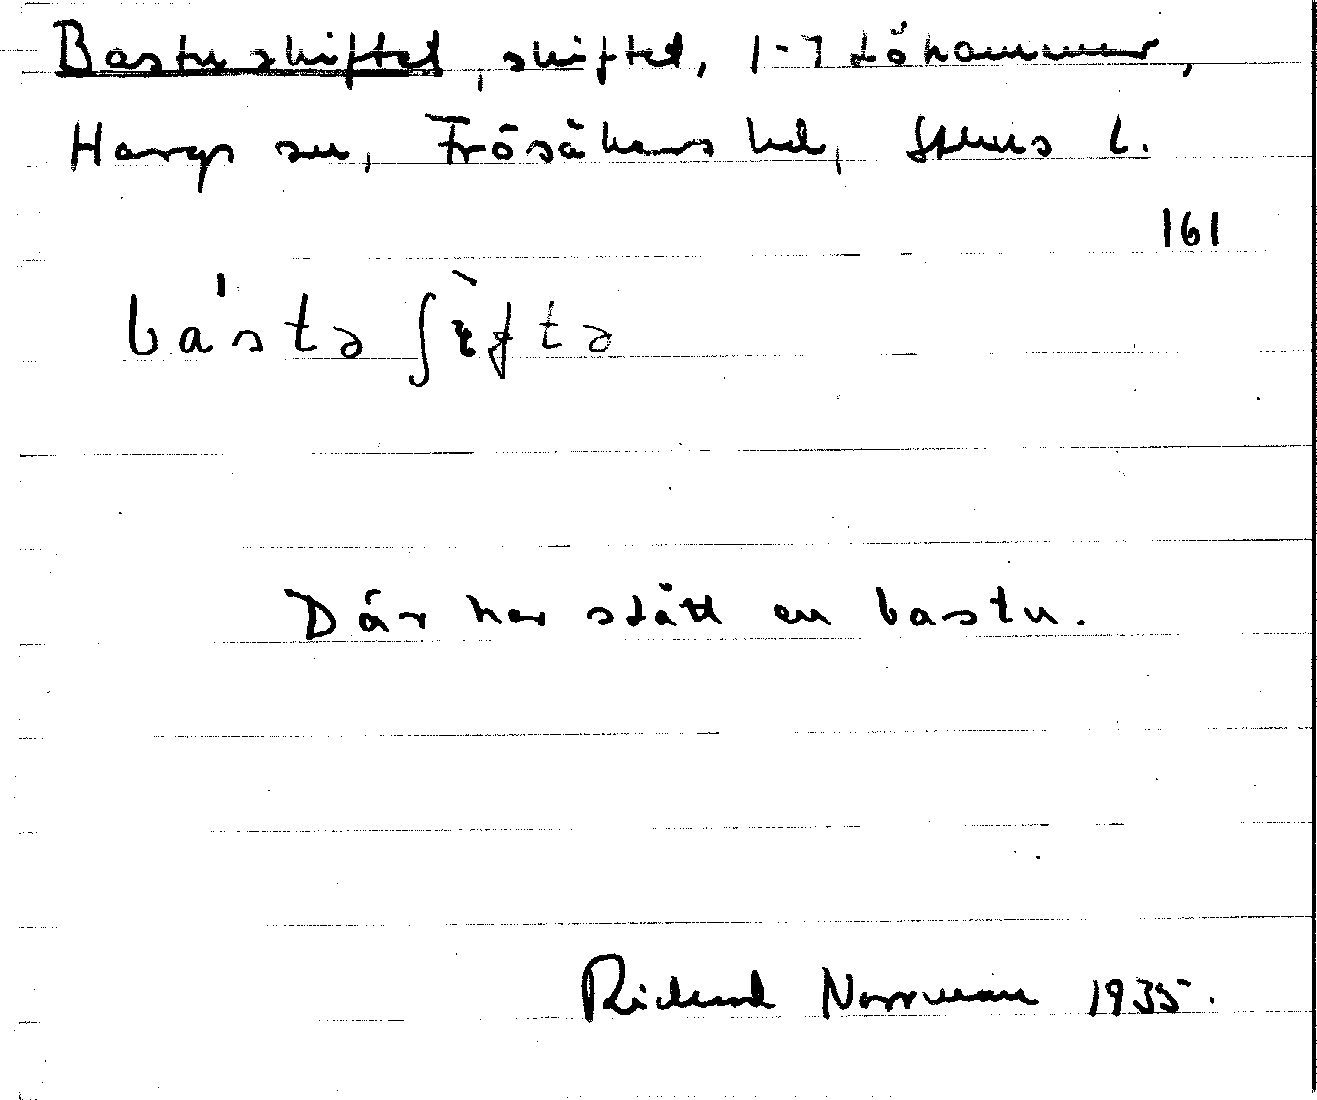 Bastuskiftet, skiftet, 1-7 Löhammar,
Hargs sn, Frösåkers hd, Sthms l.
161
bástə ʃɩ̀ftə
Där har stått en bastu.
Richard Norrman 1935.